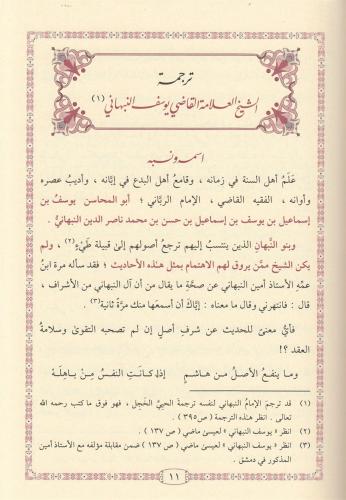 ترجمة
الشيخ العلامة القاضي يوسف النبهاني (١)
اسمه ونسبه
عَلَمُ أهل السنة في زمانه ، وقامعُ أهل البدع في إبَّانه ، وأديبُ عصره
وأوانه ، الفقيه القاضي ، الإمام الربَّاني ؛ أبو المحاسن يوسفُ بن
إسماعيل بن يوسف بن إسماعيل بن حسن بن محمد ناصر الدين النبهانيُّ .
وبنو النَّبْهانِ الذين ينتسبُ إليهم ترجعُ أصولهم إلىٰ قبيلة طَيِّئ(٢) ، ولم
يكن الشيخ ممَّن يروق لهم الاهتمام بمثل هٰذه الأحاديث ؛ فقد سأله مرة ابنُ
عمِّهِ الأستاذ أمين النبهاني عن صحَّةِ ما يقال من أن آل النبهاني من الأشراف ،
قال : فانتهرني وقال ما معناه : إيَّاك أن أسمعَها منك مرَّةً ثانية(٣) .
فأيُّ معنىً للحديث عن شرفِ أصلٍ إن لم تصحبه التقوىٰ وسلامةُ
العقد ؟!
وما ينفعُ الأصلُ من هاشمٍ إذا كانَتِ النفسُ مِنْ باهِلَة
(١) قد ترجمَ الإمامُ النبهاني لنفسه ترجمةَ الحييِّ الخَجِل ، فهو فوق ما كتب رحمه الله
تعالى . انظر هٰذه الترجمة ( ص٣٩٥ ) .
(٢) انظر « يوسف النبهاني » لعيسىٰ ماضي ( ص١٣٧ ) .
(٣) انظر « يوسف النبهاني » لعيسىٰ ماضي ( ص١٣٧ ) ضمن مقابلة مؤلفه مع الأستاذ أمين
المذكور في دمشق .
١١